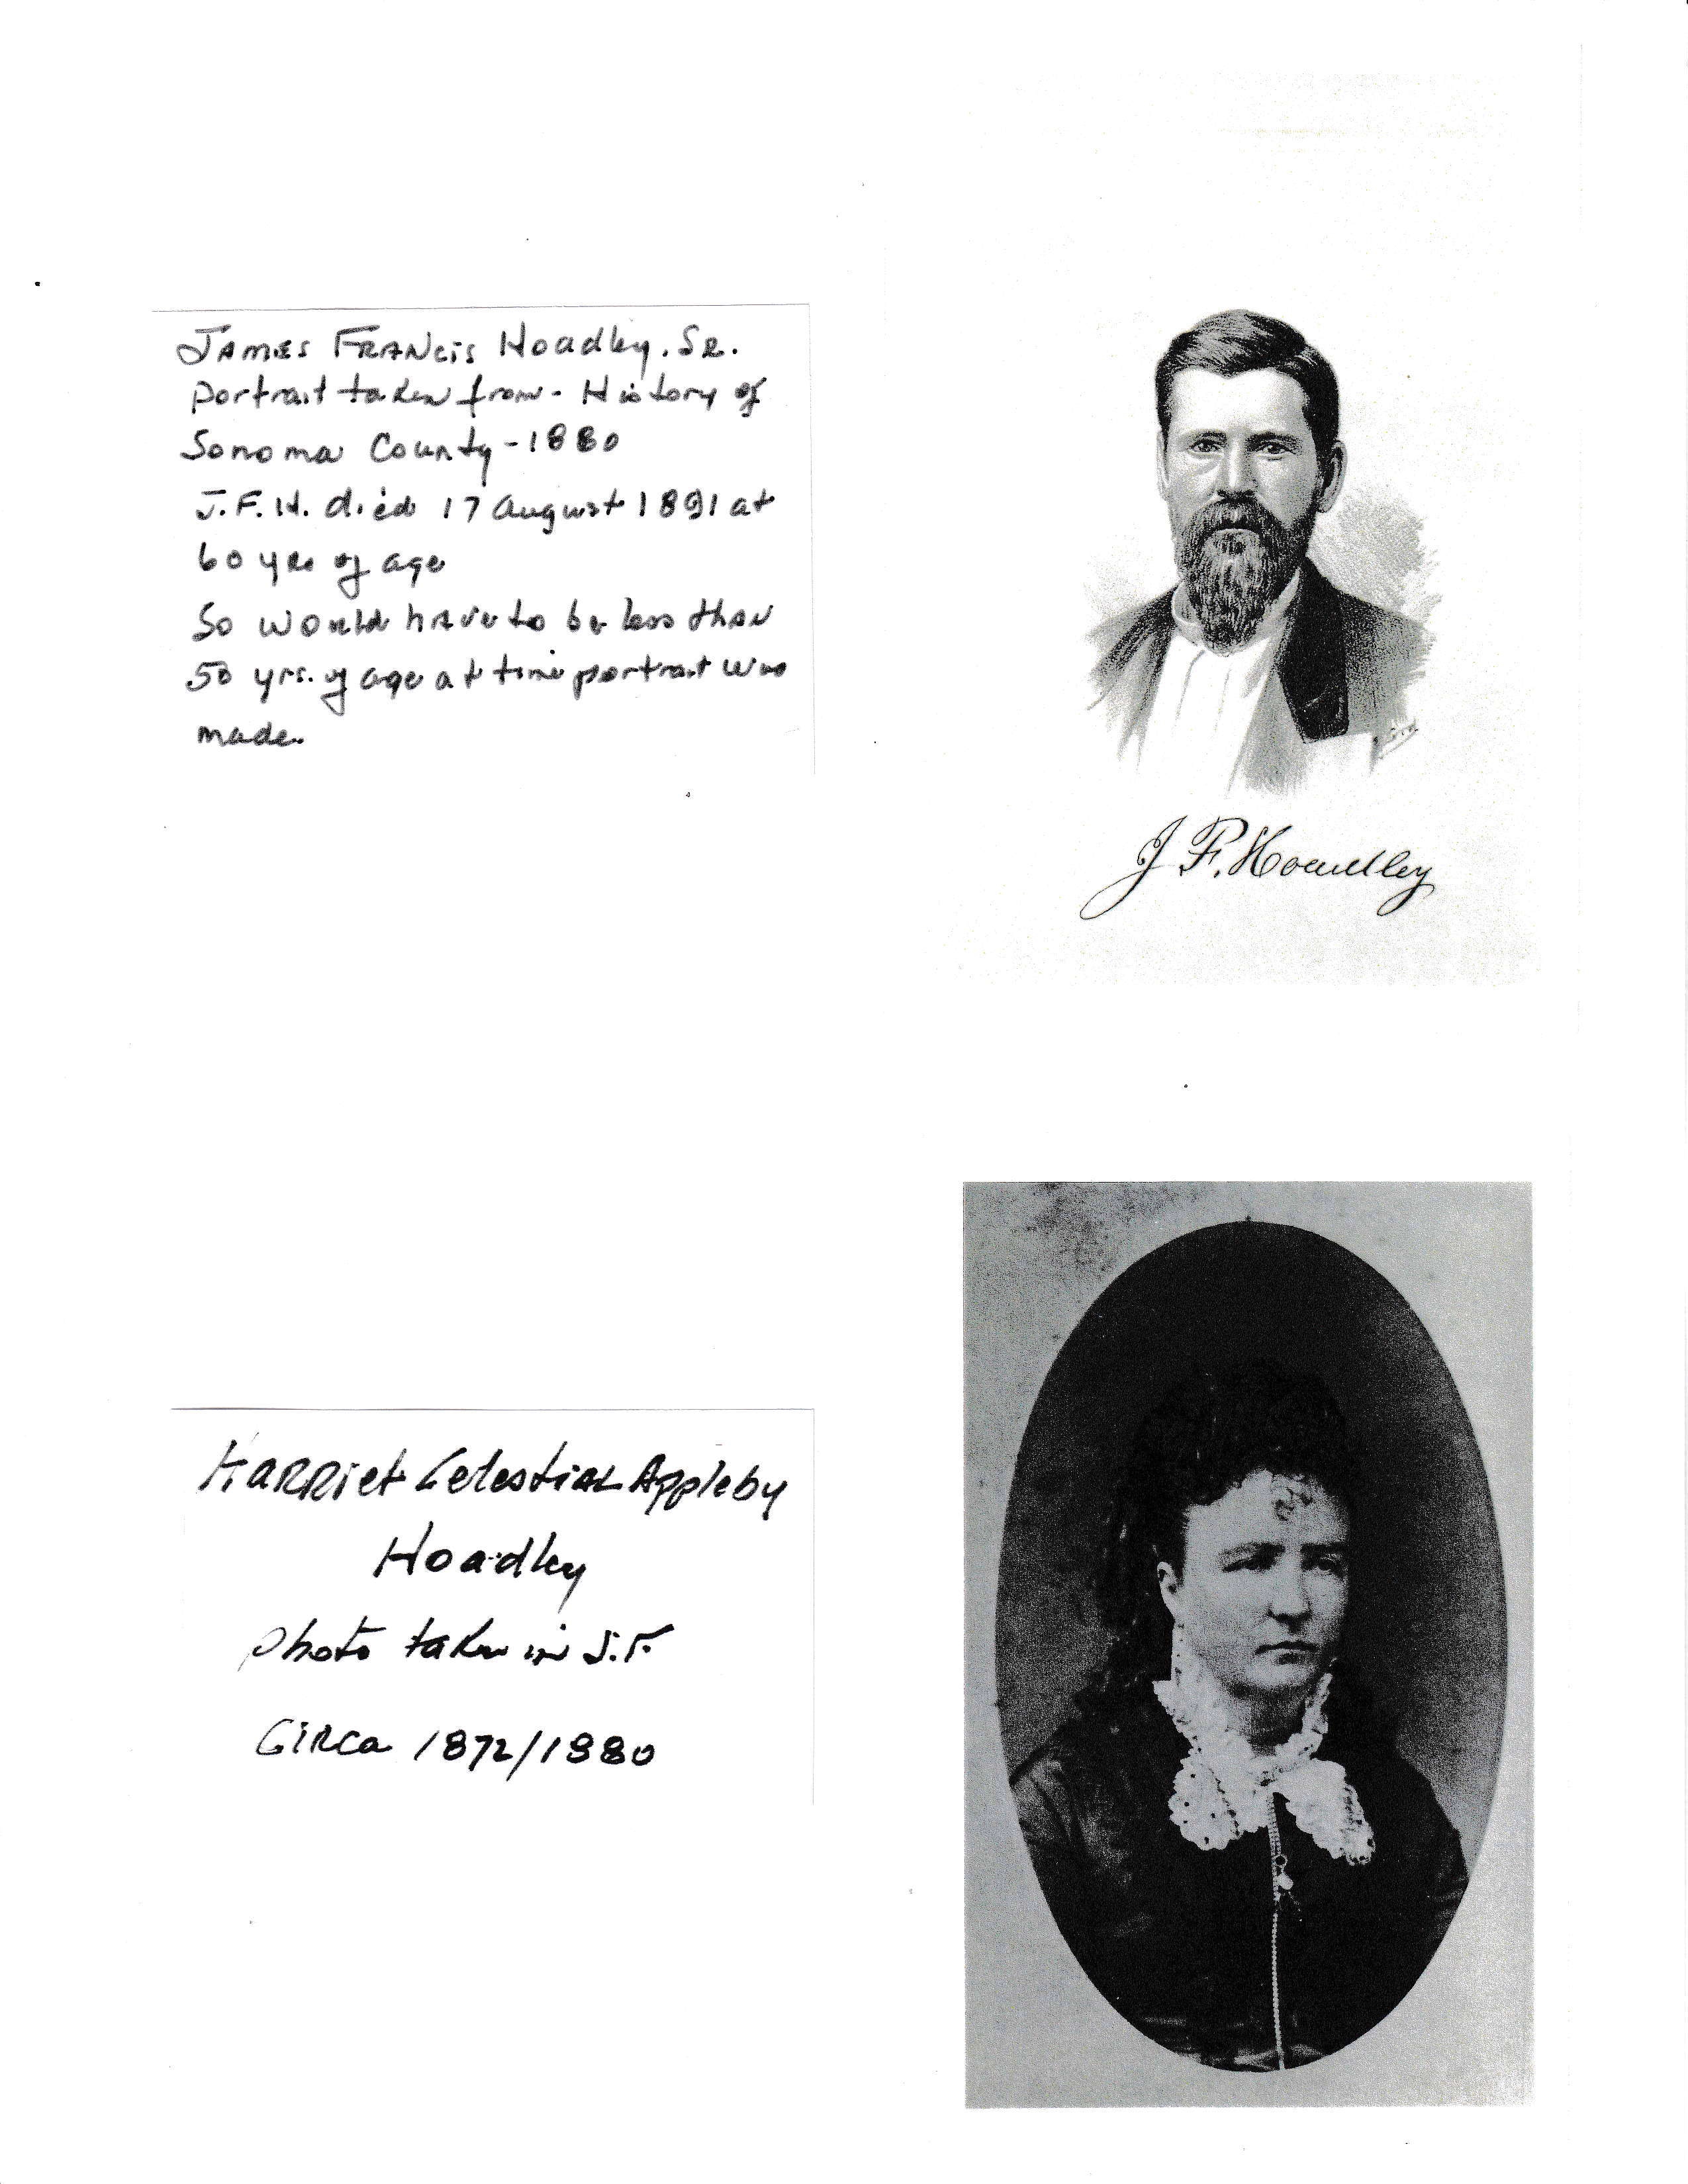 JAMES FRANCIS Hoadley, SR.
Portrait taken from - History of
Sonoma County - 1880
J.F.H. died 17 August 1891 at
60 yrs of age
So would have to be less than
50 yrs. of age at time portrait was
made.
J F. Hoadley
HARRiet Celestial Appleby
Hoadley
photo taken in S.F.
CiRca 1872/1880